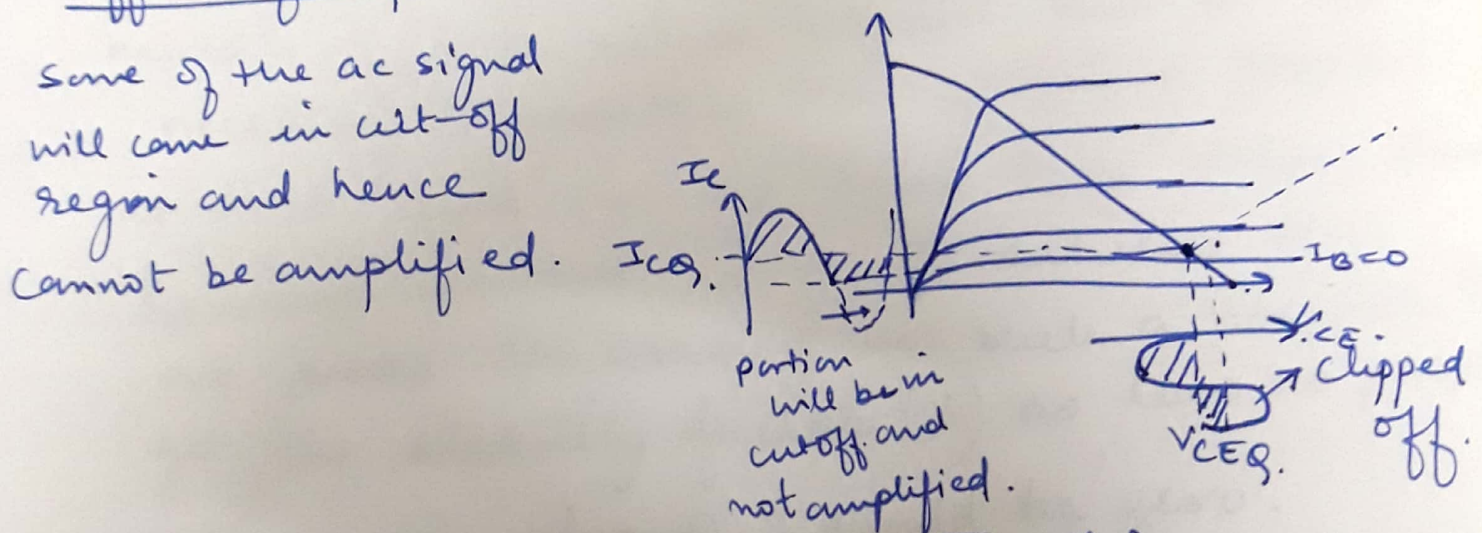 some of the ac signal
will come in cut-off
region and hence
cannot be amplified.
Ic
ICQ.
IB=0
VCE.
portion
will be in
cutoff and
not amplified.
Clipped
off.
VCEQ.